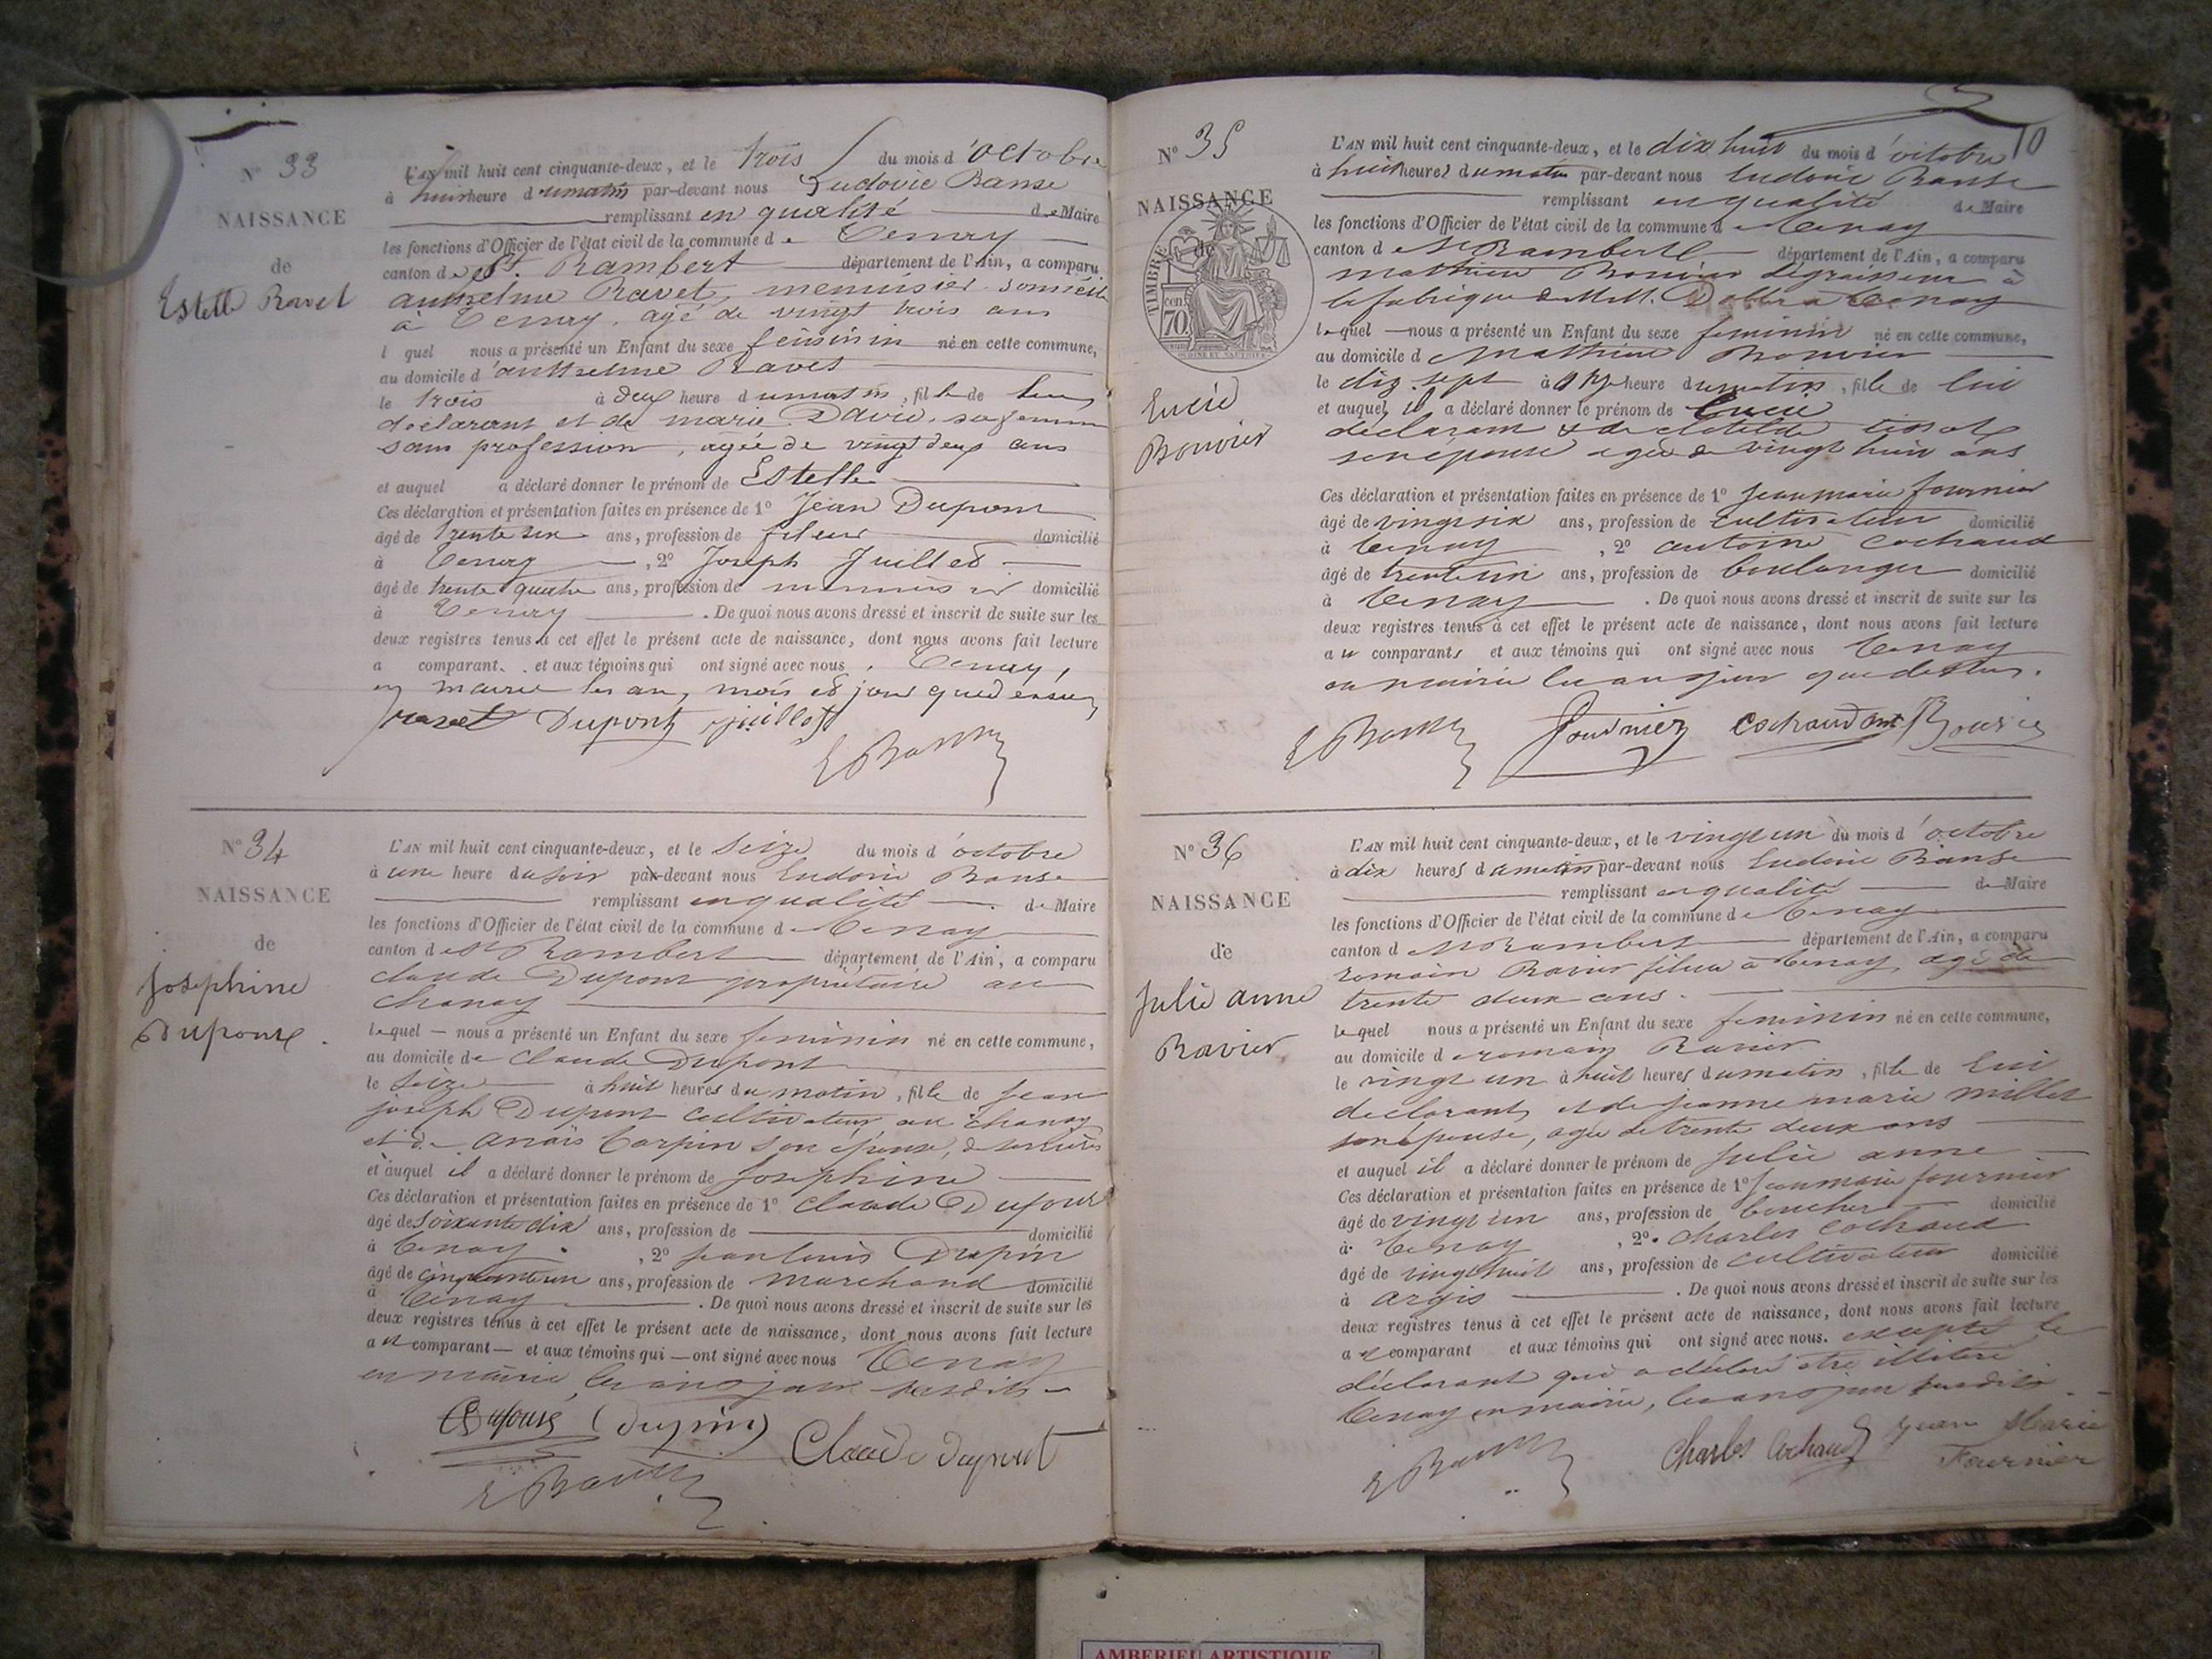 N° 33
NAISSANCE
de
Estelle Ravet
L'AN mil huit cent cinquante-deux, et le trois du mois d'octobre
à huit heure du matin par-devant nous Ludovic Banse
remplissant en qualité de Maire
les fonctions d'Officier de l'état civil de la commune de Tenay
canton de St. Rambert département de l'Ain, a comparu
anthelme Ravet, menuisier domicilié
à Tenay, agé de vingt trois ans
l quel nous a présenté un Enfant du sexe féminin né en cette commune,
au domicile d'anthelme Ravet
le trois à deux heure du matin, fille de lui
déclarant et de marie David, sa femme
sans profession, agée de vingt deux ans
et auquel a déclaré donner le prénom de Estelle
Ces déclaration et présentation faites en présence de 1° Jean Dupont
âgé de trente six ans, profession de fileur domicilié
à Tenay, 2° Joseph Juillet
âgé de trente quatre ans, profession de menuisier domicilié
à Tenay. De quoi nous avons dressé et inscrit de suite sur les
deux registres tenus à cet effet le présent acte de naissance, dont nous avons fait lecture
a comparant. et aux témoins qui ont signé avec nous. Tenay,
en mairie les an, mois et jour que dessus
ravet Dupont juillet
L Banse
N° 34
NAISSANCE
de
Josephine
Dupont.
L'AN mil huit cent cinquante-deux, et le seize du mois d'octobre
à une heure du soir par-devant nous Ludovic Banse
remplissant en qualité de Maire
les fonctions d'Officier de l'état civil de la commune de Tenay
canton de St Rambert département de l'Ain, a comparu
claude Dupont propriétaire au
chanay
lequel nous a présenté un Enfant du sexe féminin né en cette commune,
au domicile de claude Dupont
le seize à huit heures du matin, fille de jean
joseph Dupont cultivateur au chanay
et de anaïs Carpin son épouse,
et auquel il a déclaré donner le prénom de Josephine
Ces déclaration et présentation faites en présence de 1° claude Dufour
âgé de soixante dix ans, profession de domicilié
à Tenay. , 2° jean louis Dupin
âgé de cinquante un ans, profession de marchand domicilié
à Tenay. De quoi nous avons dressé et inscrit de suite sur les
deux registres tenus à cet effet le présent acte de naissance, dont nous avons fait lecture
au comparant et aux témoins qui ont signé avec nous Tenay
en mairie, les an et jour susdits
Dufour (dupin) Claude dupont
L Banse
10
N° 35
NAISSANCE
de
TIMBRE
70 cen.
Lucie
Bouvier
L'AN mil huit cent cinquante-deux, et le dix huit du mois d'octobre
à huit heures du matin par-devant nous Ludovic Banse
remplissant en qualité de Maire
les fonctions d'Officier de l'état civil de la commune de Tenay
canton de St Rambert département de l'Ain, a comparu
mathieu Bouvier dégraisseur à
la fabrique de MM. à Tenay
lequel nous a présenté un Enfant du sexe féminin né en cette commune,
au domicile de Mathieu Bouvier
le dix sept à heure du matin, fille de lui
et auquel il a déclaré donner le prénom de Lucie
déclarant & de clotilde tissot
son épouse agée de vingt huit ans
Ces déclaration et présentation faites en présence de 1° jean marie fournier
âgé de vingt six ans, profession de cultivateur domicilié
à Tenay, 2° antoine cochaud
âgé de trente un ans, profession de boulanger domicilié
à Tenay. De quoi nous avons dressé et inscrit de suite sur les
deux registres tenus à cet effet le présent acte de naissance, dont nous avons fait lecture
au comparants et aux témoins qui ont signé avec nous Tenay
en mairie les an & jour que dessus.
L Banse Fournier Cochaud ant Bouvier
N° 36
NAISSANCE
de
Julie anne
Ravier
L'AN mil huit cent cinquante-deux, et le vingt un du mois d'octobre
à dix heures du matin par-devant nous Ludovic Banse
remplissant en qualité de Maire
les fonctions d'Officier de l'état civil de la commune de Tenay
canton de St Rambert département de l'Ain, a comparu
romain Ravier fileur à Tenay, agé de
trente deux ans.
lequel nous a présenté un Enfant du sexe féminin né en cette commune,
au domicile de romain Ravier
le vingt un à huit heures du matin, fille de lui
déclarant, et de jeanne marie millet
son épouse, agée de trente deux ans
et auquel il a déclaré donner le prénom de Julie anne
Ces déclaration et présentation faites en présence de 1° jean marie fournier
âgé de vingt un ans, profession de boucher domicilié
à Tenay, 2°. charles cochaud
âgé de vingt huit ans, profession de cultivateur domicilié
à argis. De quoi nous avons dressé et inscrit de suite sur les
deux registres tenus à cet effet le présent acte de naissance, dont nous avons fait lecture
au comparant et aux témoins qui ont signé avec nous. excepté le
déclarant qui a déclaré être illitéré
Tenay en mairie, les an & jour susdits.
L Banse Charles Cochaud Jean Marie
Fournier
AMBERIEU ARTISTIQUE